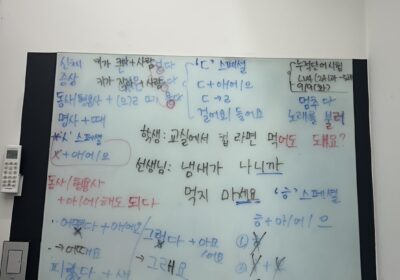 신체 여가 큰 + 사람
증상 키가 작 + 사람
동사/형용사 + (으)ㄹ 때
명사 + 때
'ㅅ' 스페셜
+ 아/어/으
동사/형용사
+ 아/어/해도 되다
'ㄷ' 스페셜
ㄷ + 아/어/으
ㄷ → ㄹ
걸어요/들어요
누적단어시험
9/9(화)
멈추다
노래를 불러
학생: 교실에서 컵 라면 먹어도 돼요?
선생님: 냄새가 나니까
먹지 마세요
'ㅎ' 스페셜
ㅎ + 아/어/으
어떻다 + 아/어요
→ 어때요
그렇다 + 아요
/어요
→ 그래요
①
②